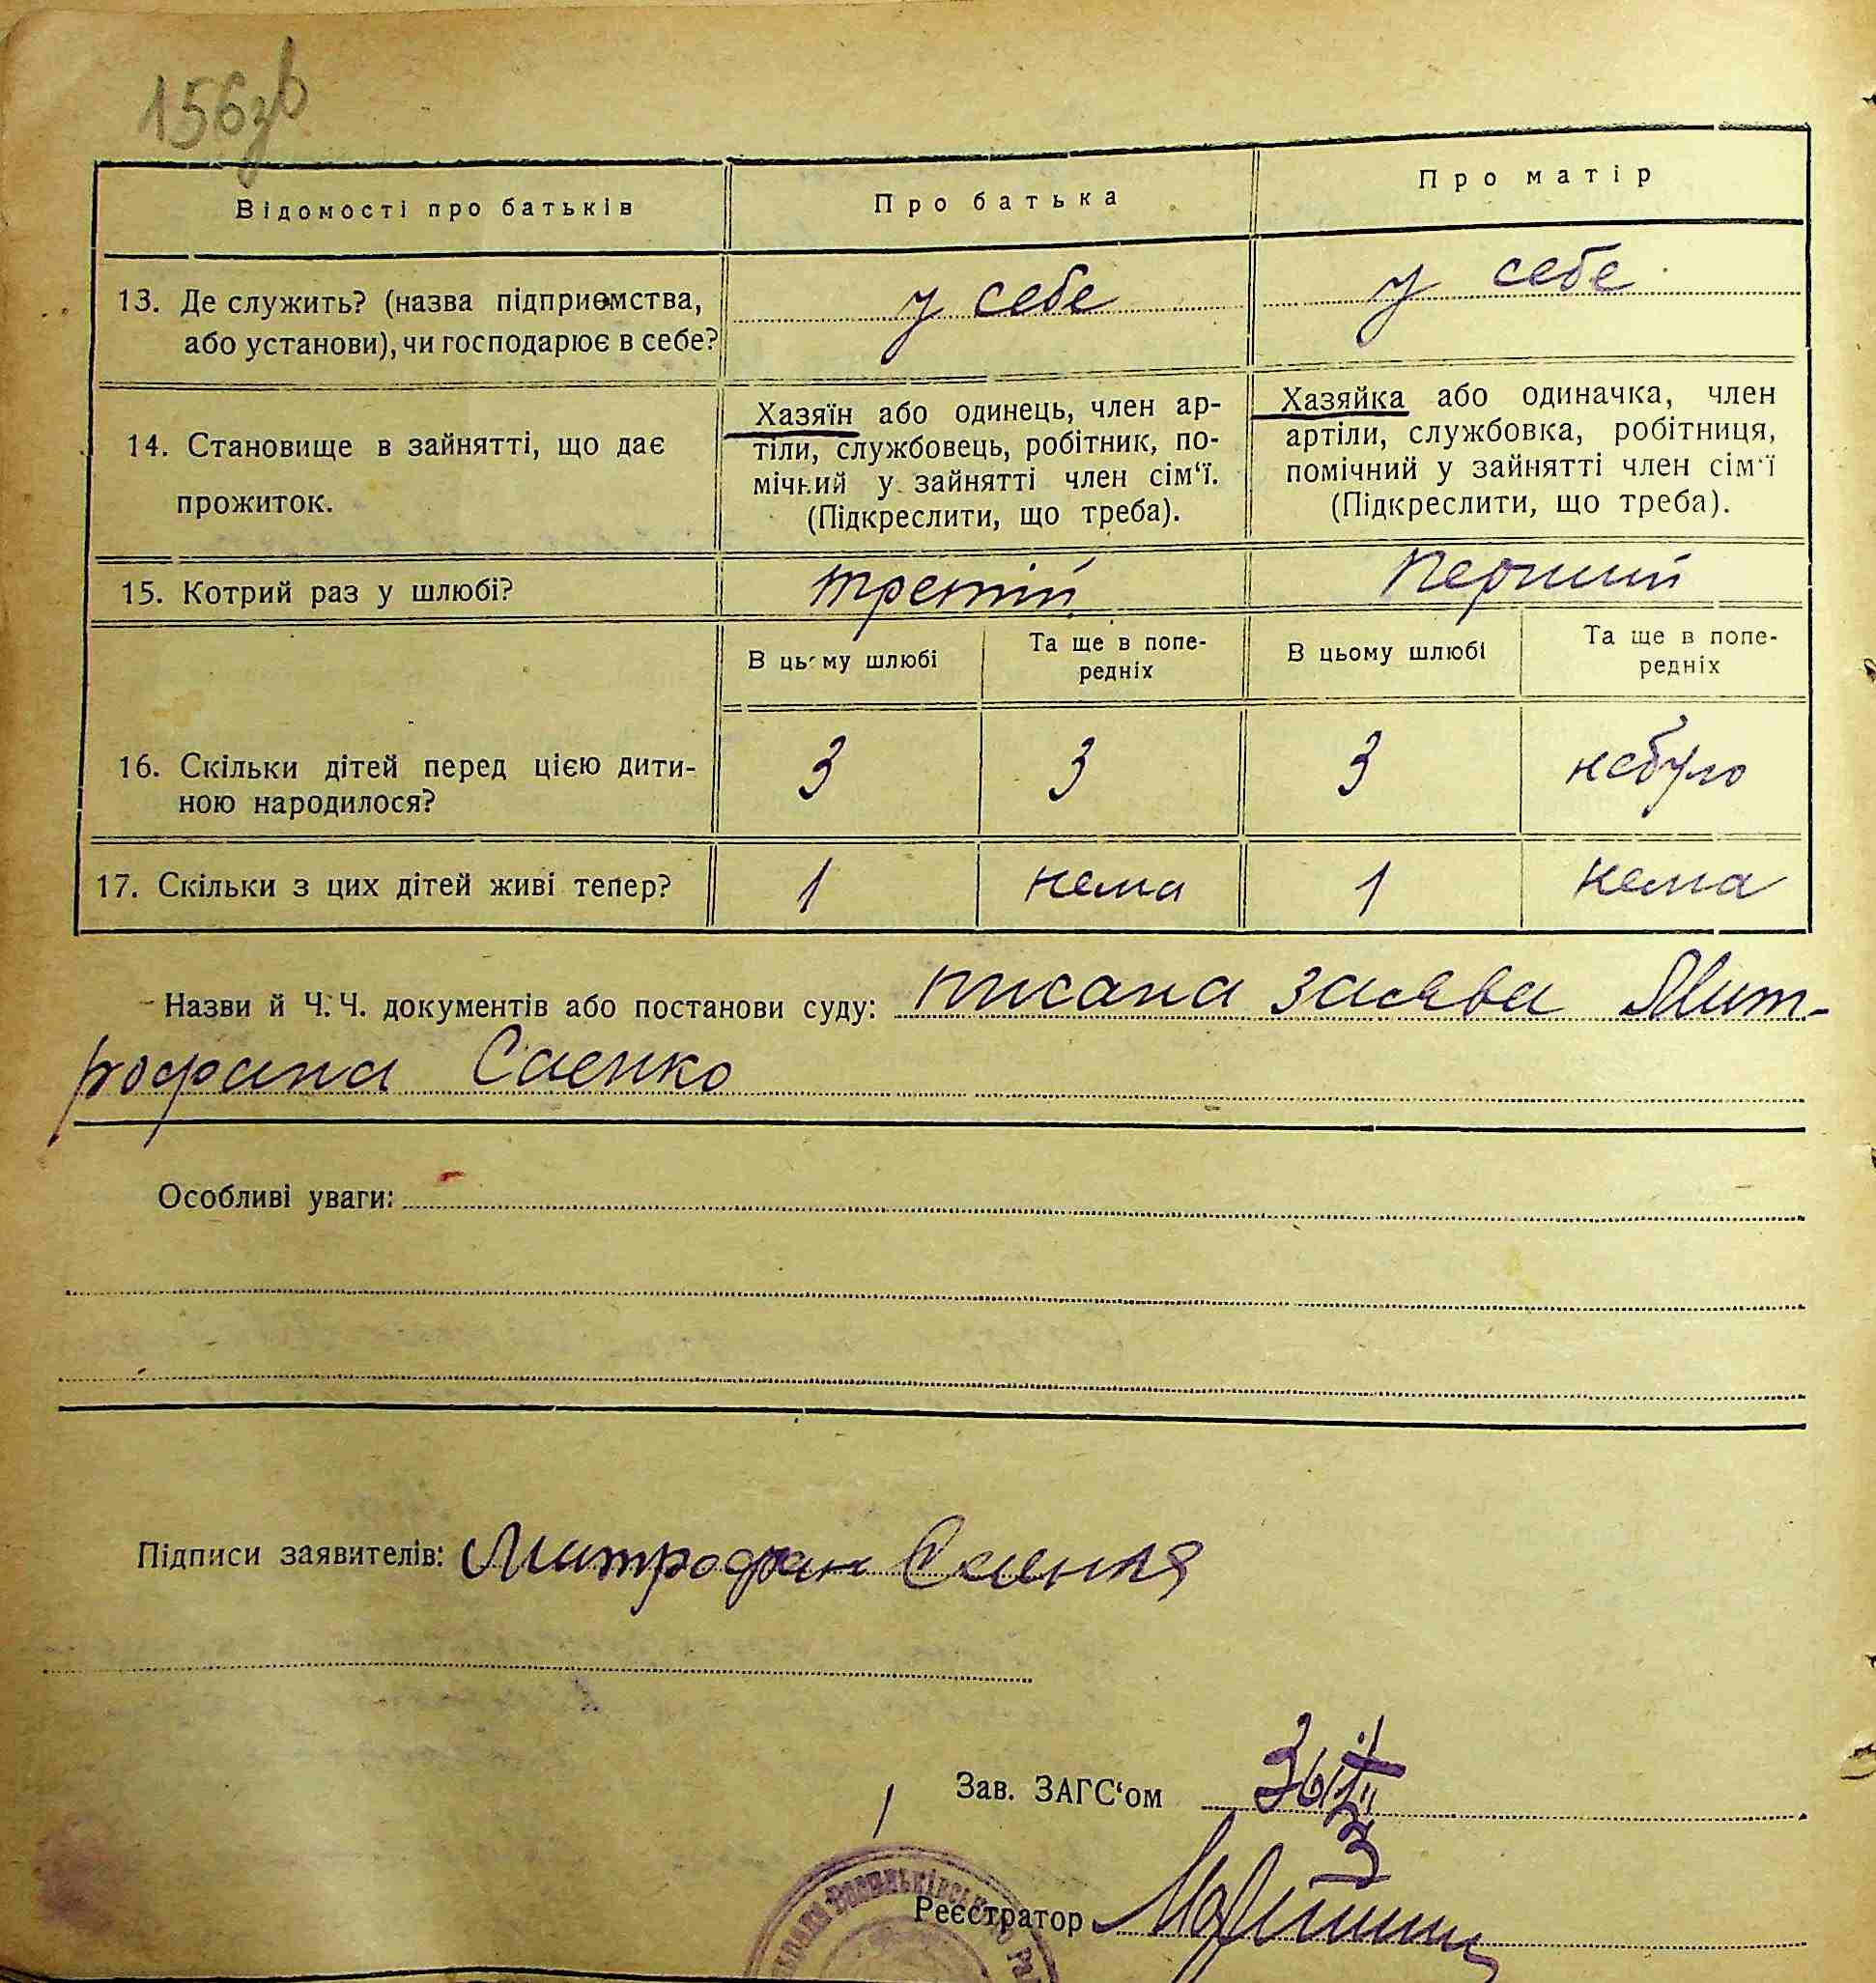 156зв
Відомості про батьків
Про батька
Про матір
13. Де служить? (назва підприємства,
або установи), чи господарює в себе?
у себе
у себе
14. Становище в зайнятті, що дає
прожиток.
Хазяїн або одинець, член ар-
тіли, службовець, робітник, по-
мічний у зайнятті член сім‘ї.
(Підкреслити, що треба).
Хазяйка або одиначка, член
артіли, службовка, робітниця,
помічний у зайнятті член сім‘ї
(Підкреслити, що треба).
15. Котрий раз у шлюбі?
третій
перший
В цьому шлюбі
Та ще в попе-
редніх
В цьому шлюбі
Та ще в попе-
редніх
16. Скільки дітей перед цією дити-
ною народилося?
3
3
3
небуло
17. Скільки з цих дітей живі тепер?
1
нема
1
нема
Назви й Ч. Ч. документів або постанови суду: писана заява Мит-
рофана Саенко
Особливі уваги:
Підписи заявителів: Митрофан Саенко
Зав. ЗАГС‘ом
Реєстратор